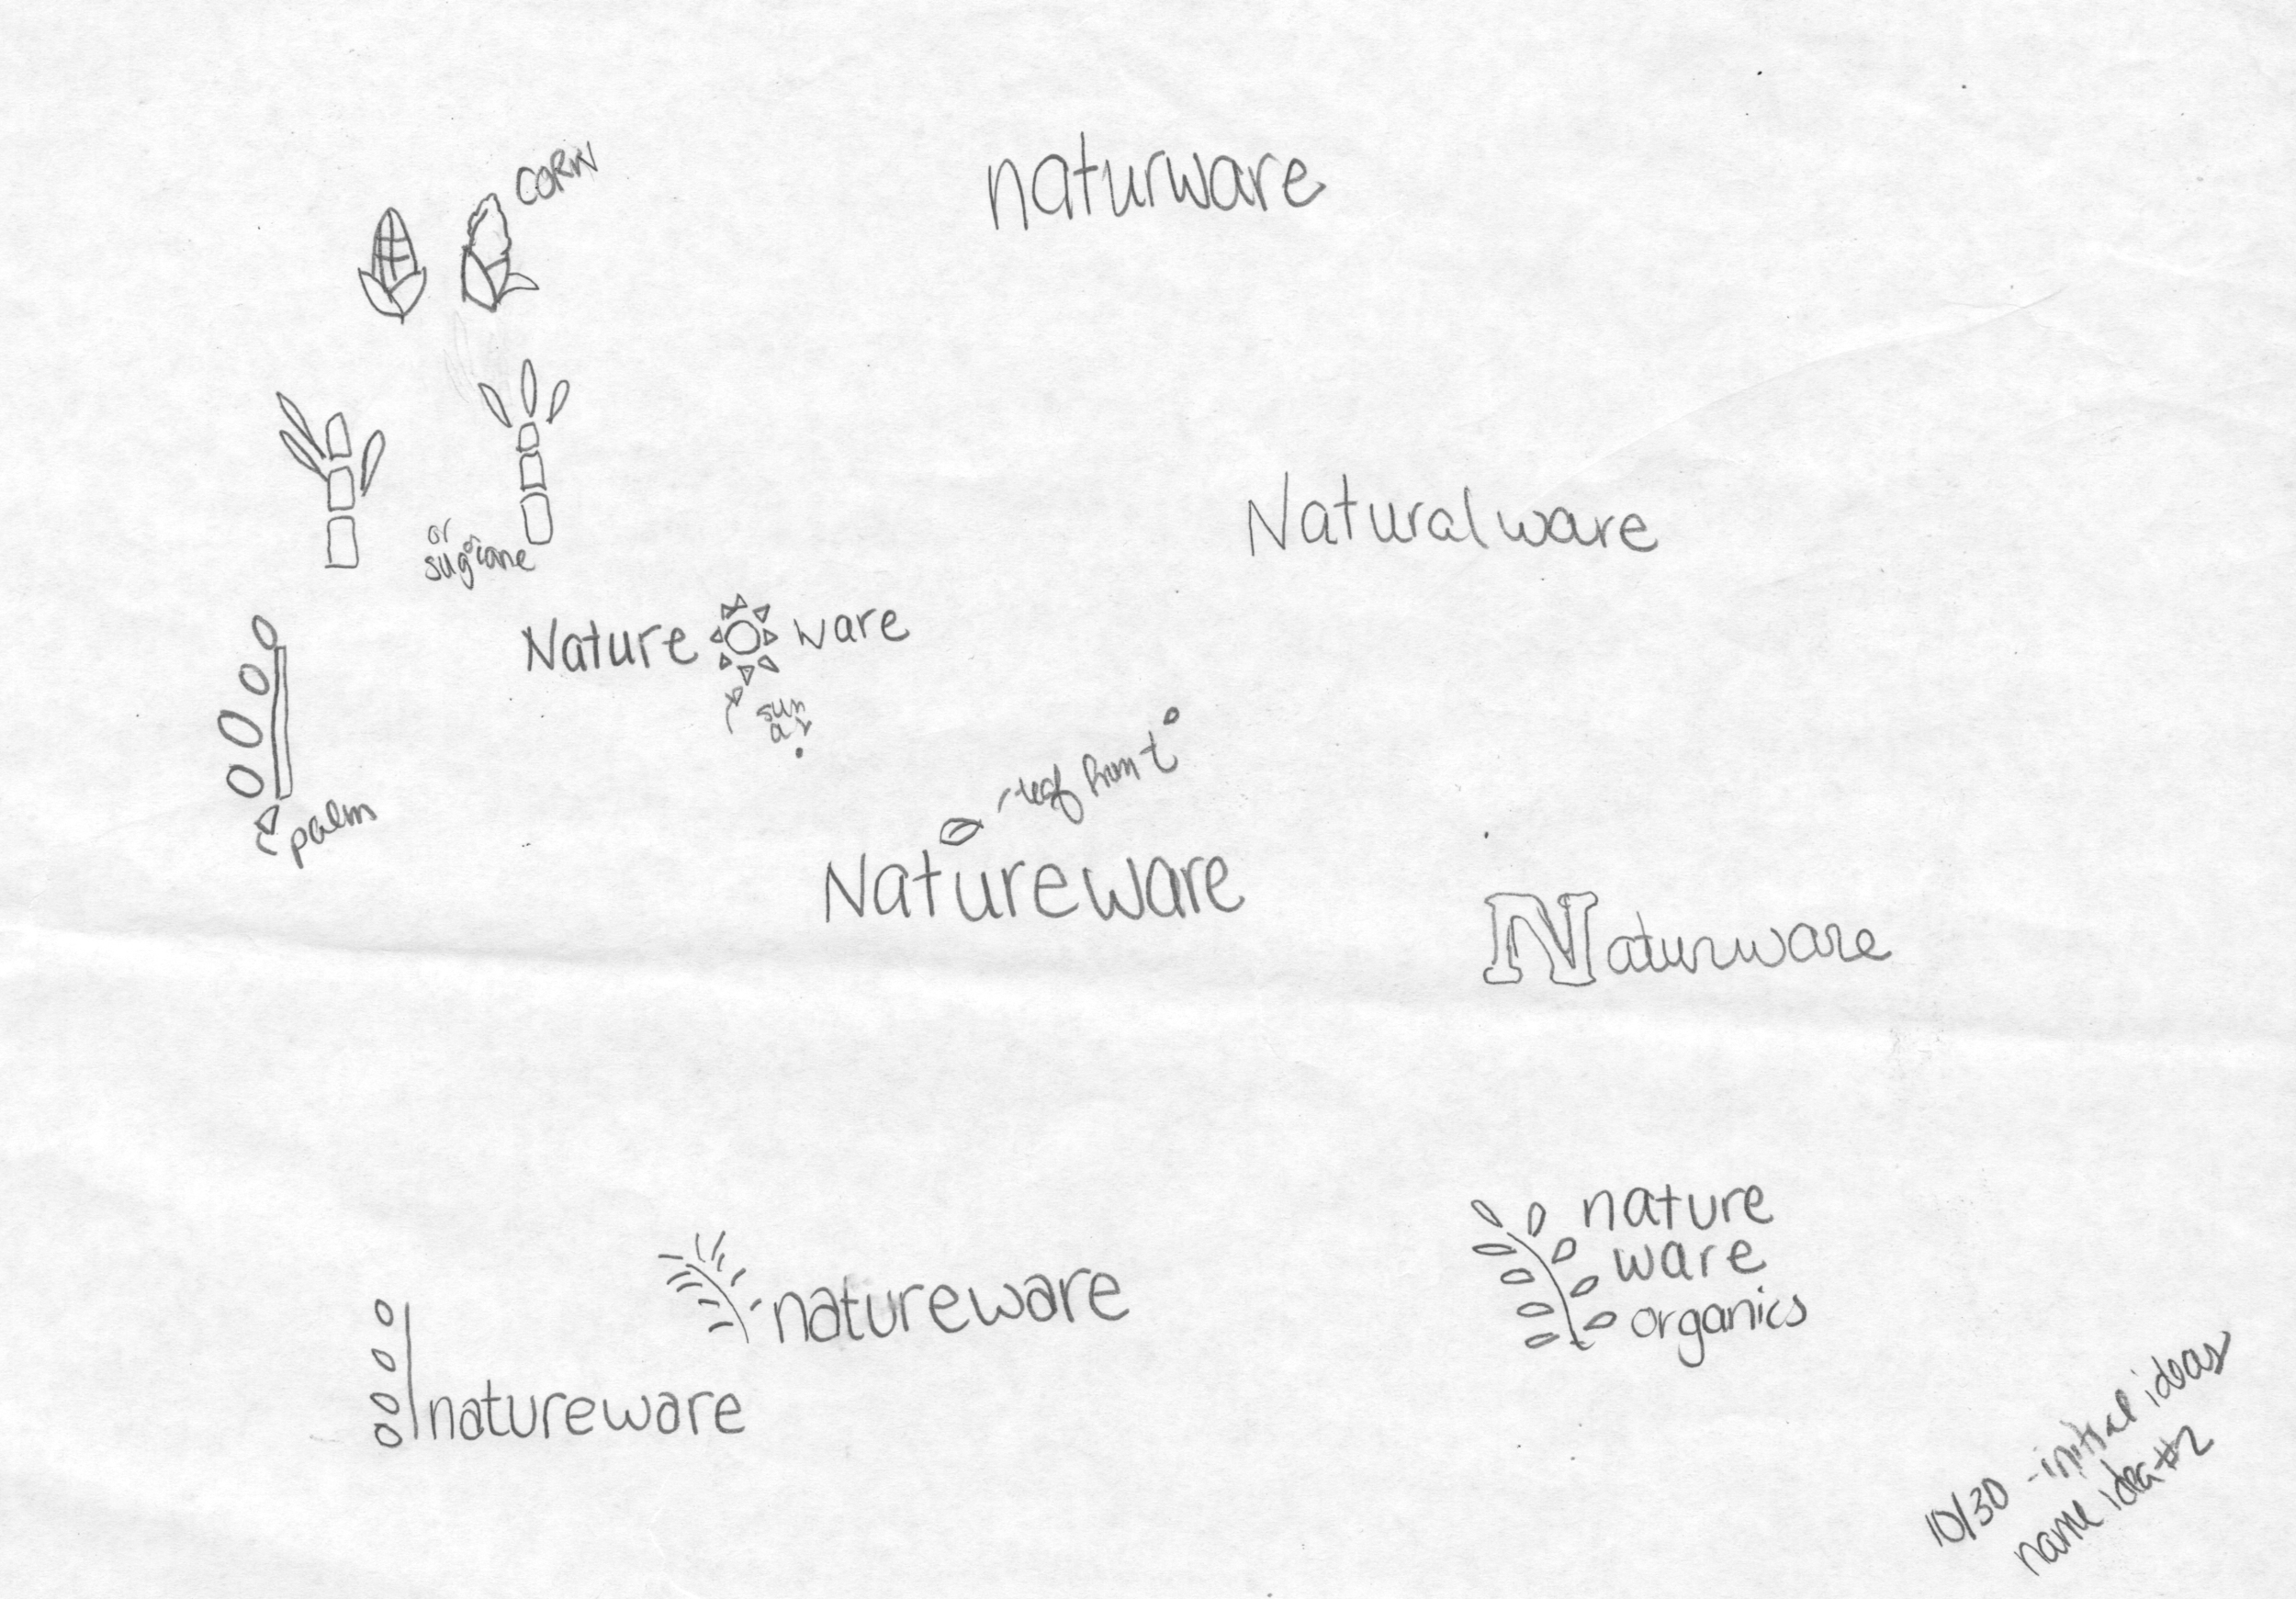 CORN
naturware
or
sugarcane
Naturalware
Nature ware
sun
palm
leaf from t
Natureware
Naturware
nature
ware
organics
natureware
natureware
10/30 - initial ideas
name idea #2